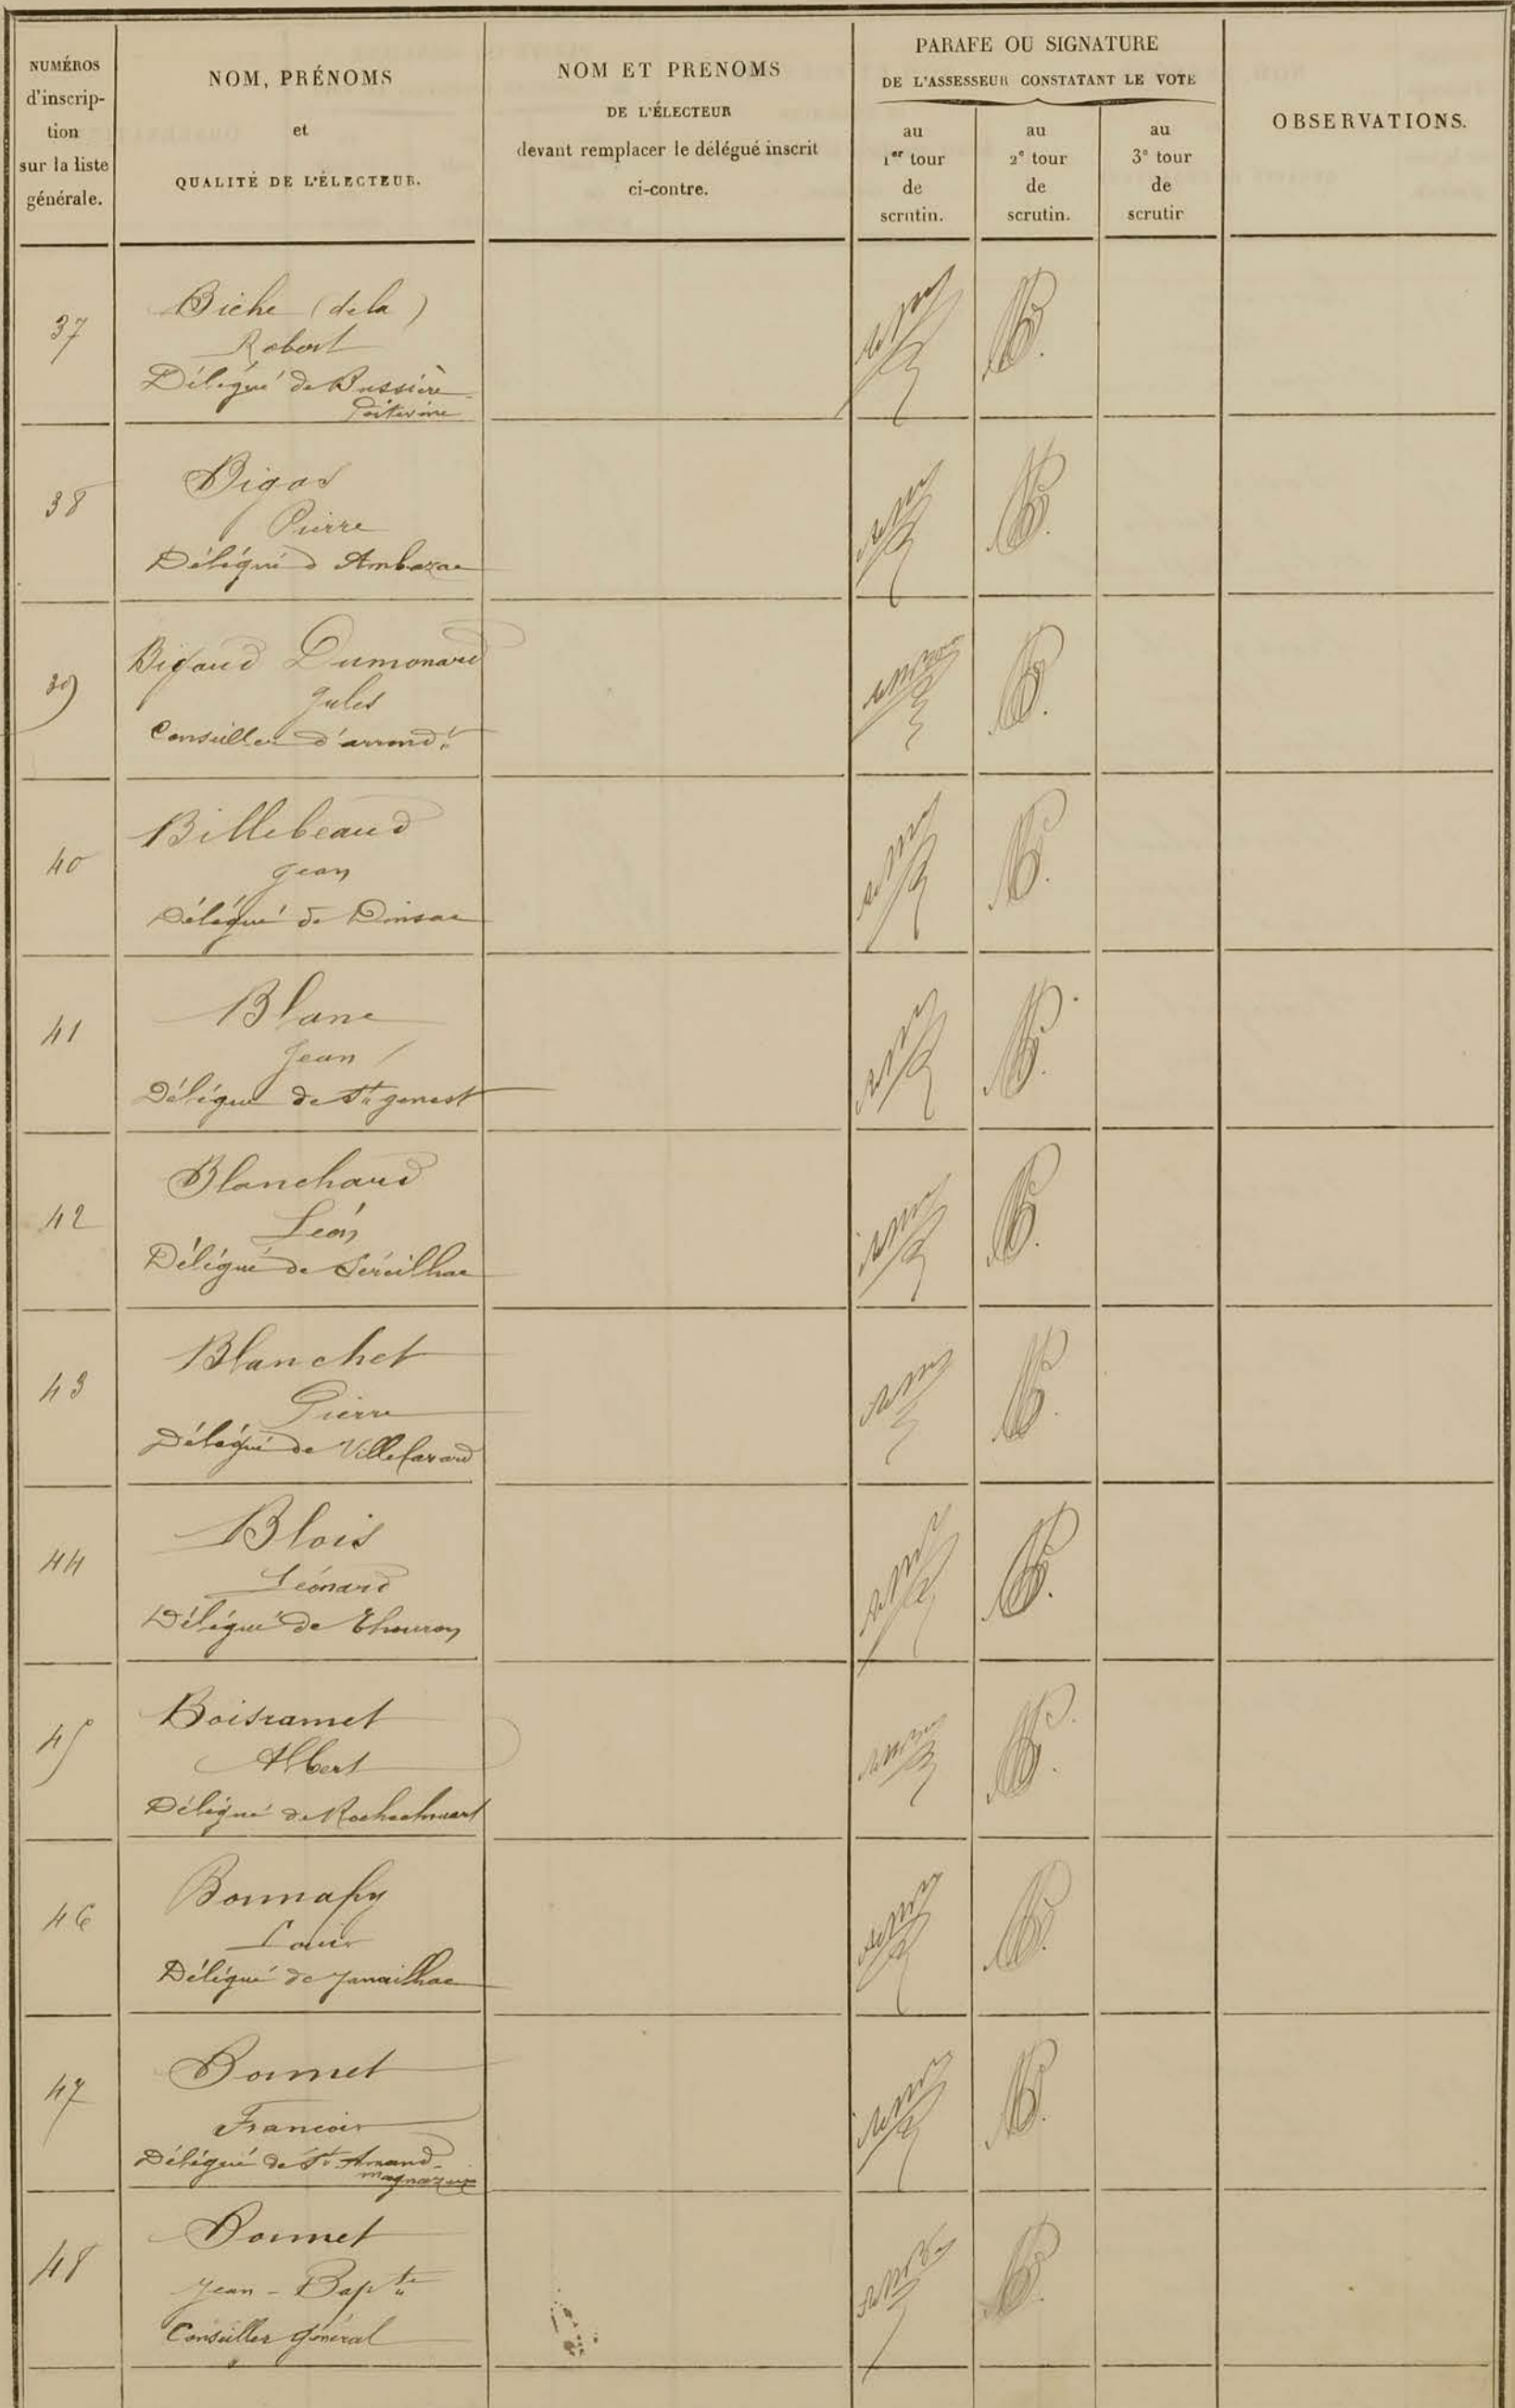 NUMÉROS
d'inscrip-
tion
sur la liste
générale.
NOM, PRÉNOMS
et
QUALITÉ DE L'ÉLECTEUR.
NOM ET PRENOMS
DE L'ÉLECTEUR
devant remplacer le délégué inscrit
ci-contre.
PARAFE OU SIGNATURE
DE L'ASSESSEUR CONSTATANT LE VOTE
au
1er tour
de
scrutin.
au
2e tour
de
scrutin.
au
3e tour
de
scrutin
OBSERVATIONS.
37
Biche (de la)
Robert
Délégué de Bussière-
Poitevine
38
Bigas
Pierre
Délégué d'Ambazac
39
Bigaud Dumonard
Jules
Conseiller d'arrondt
40
Billebeaud
Jean
Délégué de Dinsac
41
Blanc
Jean
Délégué de St genest
42
Blanchard
Léon
Délégué de Séreilhac
43
Blanchet
Pierre
Délégué de Villefavard
44
Blois
Léonard
Délégué de Thouron
45
Boisramet
Albert
Délégué de Rochechouart
46
Bonnafy
Louis
Délégué de Janailhac
47
Bonnet
Francois
Délégué de St Amand-
magnazeix
48
Bonnet
Jean-Bapte
Conseiller général